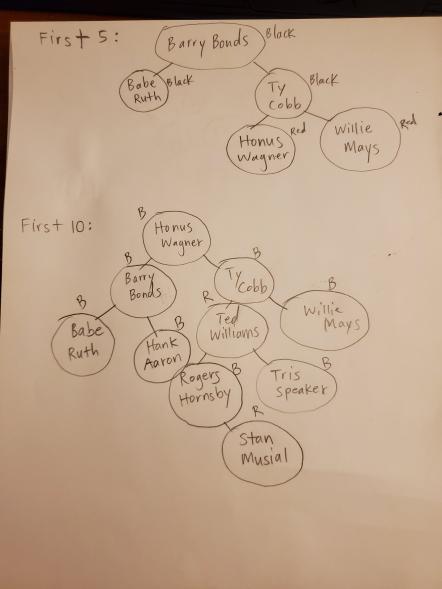 First 5:
Barry Bonds
Black
Babe
Ruth
Black
Ty
Cobb
Black
Honus
Wagner
Red
Willie
Mays
Red
First 10:
B
Honus
Wagner
B
Barry
Bonds
B
Ty
Cobb
B
Babe
Ruth
B
Hank
Aaron
R
Ted
Williams
B
Willie
Mays
B
Rogers
Hornsby
B
Tris
Speaker
R
Stan
Musial